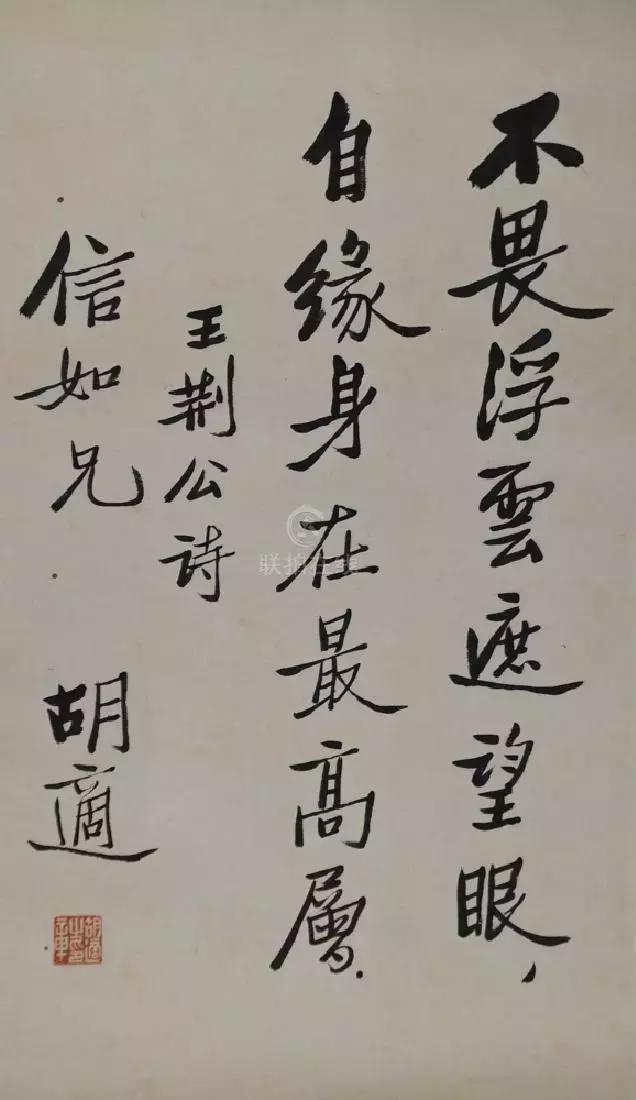 不畏浮雲遮望眼，
自缘身在最高層.
王荆公诗
信如兄
胡適
联拍在线